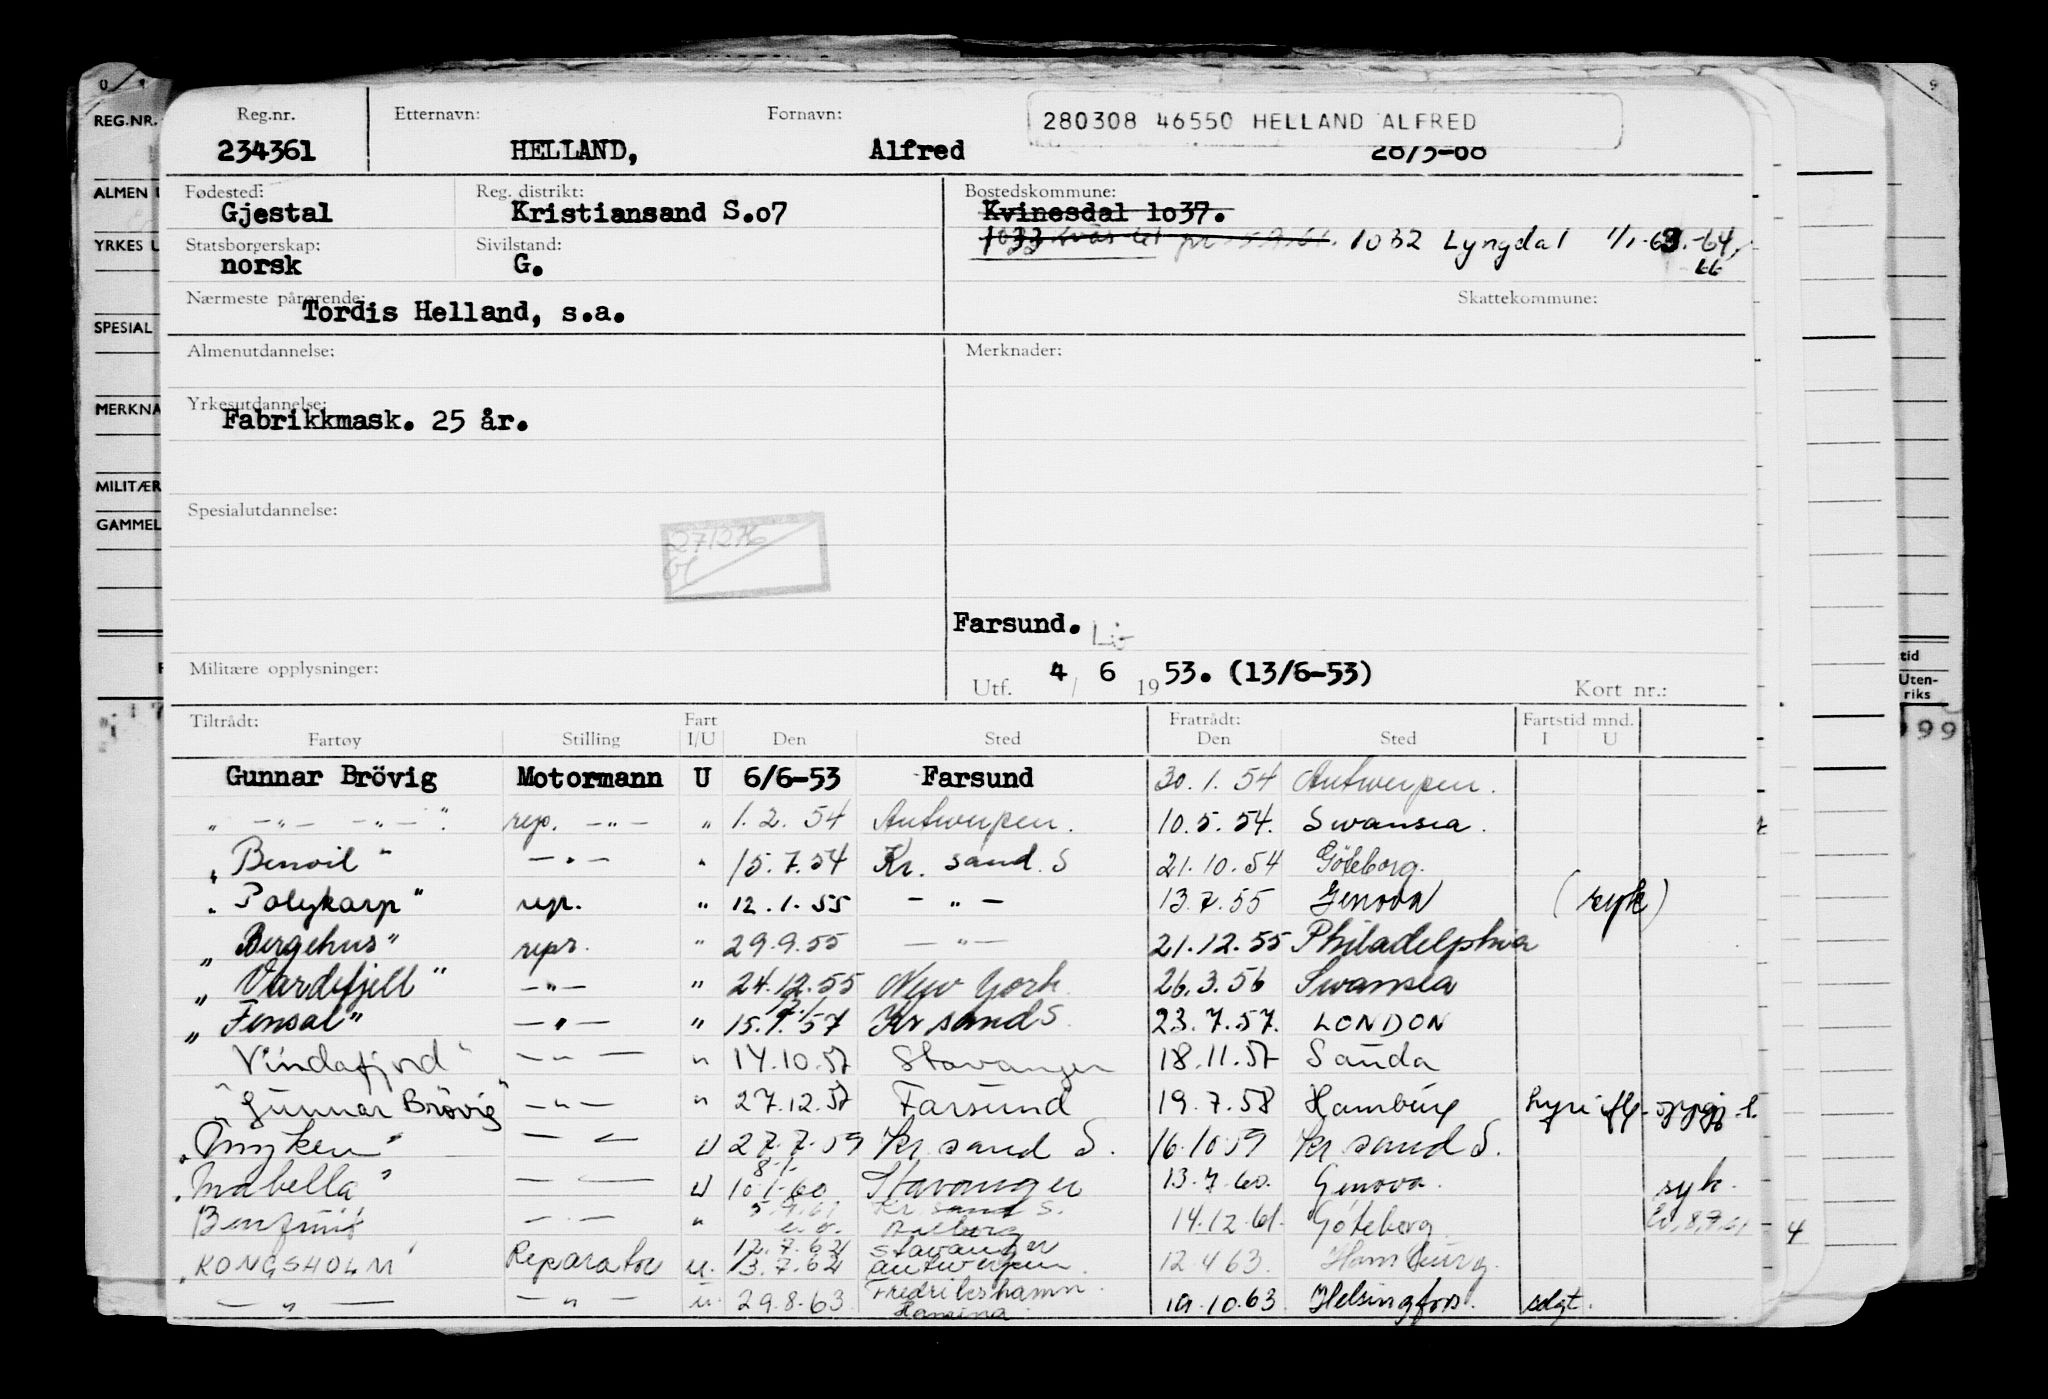 REG.NR.
ALMEN
YRKES
SPESIAL
MERKNA
MILITÆR
GAMMEL
Reg.nr. Etternavn: Fornavn: 280308 46550 HELLAND ALFRED
234361 HELLAND, Alfred 28/3-08
Fødested: Reg. distrikt: Bostedskommune:
Gjestal Kristiansand S.o7 Kvinesdal 1o37.
Statsborgerskap: Sivilstand: 1032 Lyngdal
norsk G.
Nærmeste pårørende: Skattekommune:
Tordis Helland, s.a.
Almenutdannelse: Merknader:
Yrkesutdannelse:
Fabrikkmask. 25 år.
Spesialutdannelse:
271276
Farsund.
Militære opplysninger: Utf. 4 / 6 19 53. (13/6-53) Kort nr.:
Tiltrådt: Fart Fratrådt: Fartstid mnd.
Fartøy Stilling I/U Den Sted Den Sted I U
Gunnar Brövig Motormann U 6/6-53 Farsund 30.1.54 Antwerpen.
" -"- -"- ". rep. -"- " 1.2.54 Antwerpen. 10.5.54. Swansea.
"Benoil" -"- " 15.7.54 Kr. sand. S 21.10.54 Göteborg.
"Polykarp" rep. " 12.1.55 -"- 13.7.55 Genova (syk)
"Bergehus" repr. " 29.9.55 -"- 21.12.55 Philadelphia
"Vardefjell" -"- " 24.12.55 New York. 26.3.56 Swansea
"Fensal" -"- " 15.1.57 Kr sand S. 23.7.57. LONDON
Vindafjord" -"- " 14.10.57 Stavanger 18.11.57 Sauda
"Gunnar Brövig" -"- " 27.12.57 Farsund 19.7.58 Hamburg
"Myken" -"- U 27.7.59 Kr sand S. 16.10.59 Kr sand S.
"Mabella" -"- U 8/1- 10.1.60 Stavanger 13.7.60. Genova. syk.
-"- " 5.9.61 Kr. sand S. Aalborg 14.12.61. Göteborg 4
"KONGSHOLM" Reparatør u. 12.7.62 Stavanger 13.7.62 Antwerpen. 12.4.63. Hamburg.
-"- -"- u. 29.8.63 Fredrikshamn. Hamina 19.10.63. Helsingfors. solgt.
tid
Uten-
riks
99